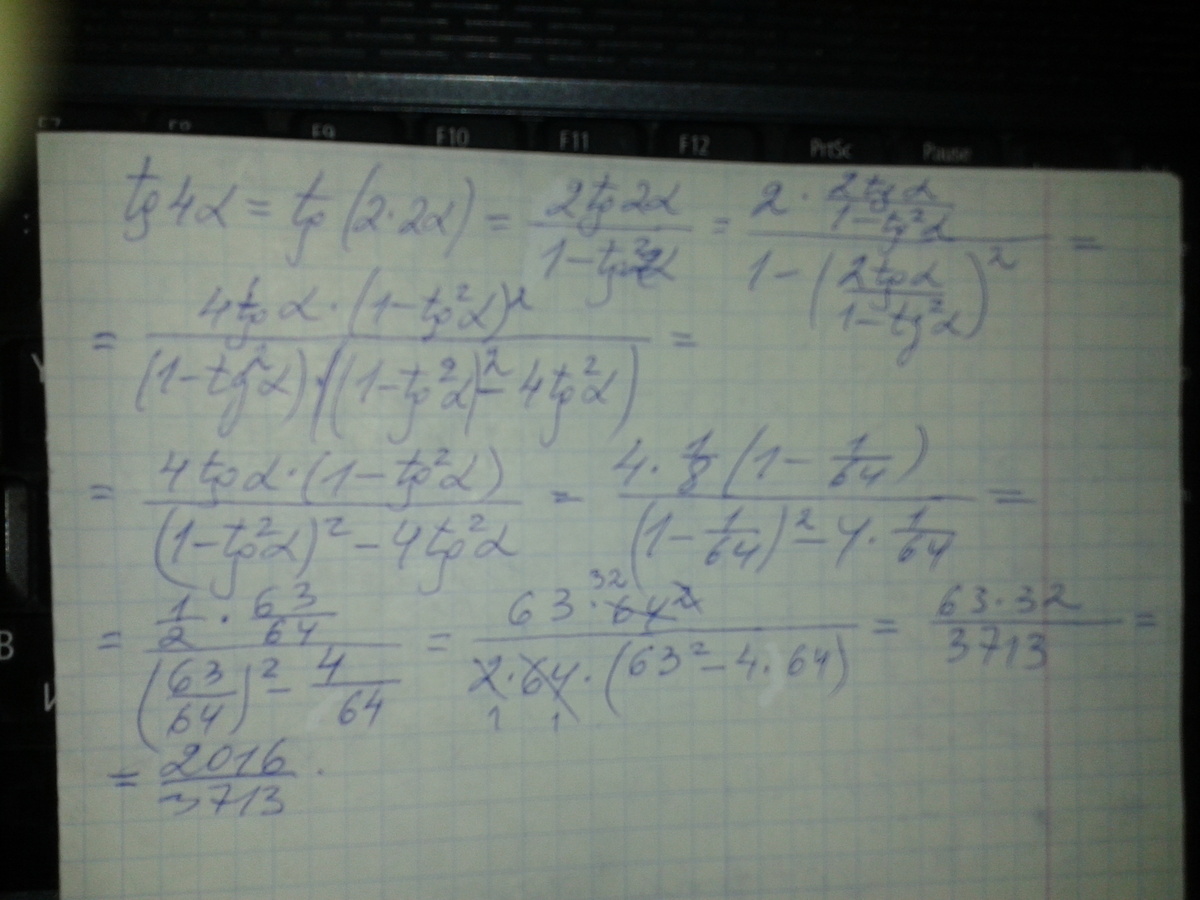 F7 F8 F9 F10 F11 F12 PrtSc Pause
tg 4α = tg (2·2α) = \frac{2tg 2α}{1-tg²2α} = \frac{2 · \frac{2tg α}{1-tg²α}}{1-(\frac{2tg α}{1-tg²α})²} =
= \frac{4tg α · (1-tg²α)²}{(1-tg²α)·((1-tg²α)²-4tg²α)} =
= \frac{4tg α·(1-tg²α)}{(1-tg²α)²-4tg²α} = \frac{4·\frac{1}{8}(1-\frac{1}{64})}{(1-\frac{1}{64})²-4·\frac{1}{64}} =
= \frac{\frac{1}{2}·\frac{63}{64}}{(\frac{63}{64})²-\frac{4}{64}} = \frac{63·64² 32}{2·64·(63²-4·64) 1 1} = \frac{63·32}{3713} =
= \frac{2016}{3713}.
В